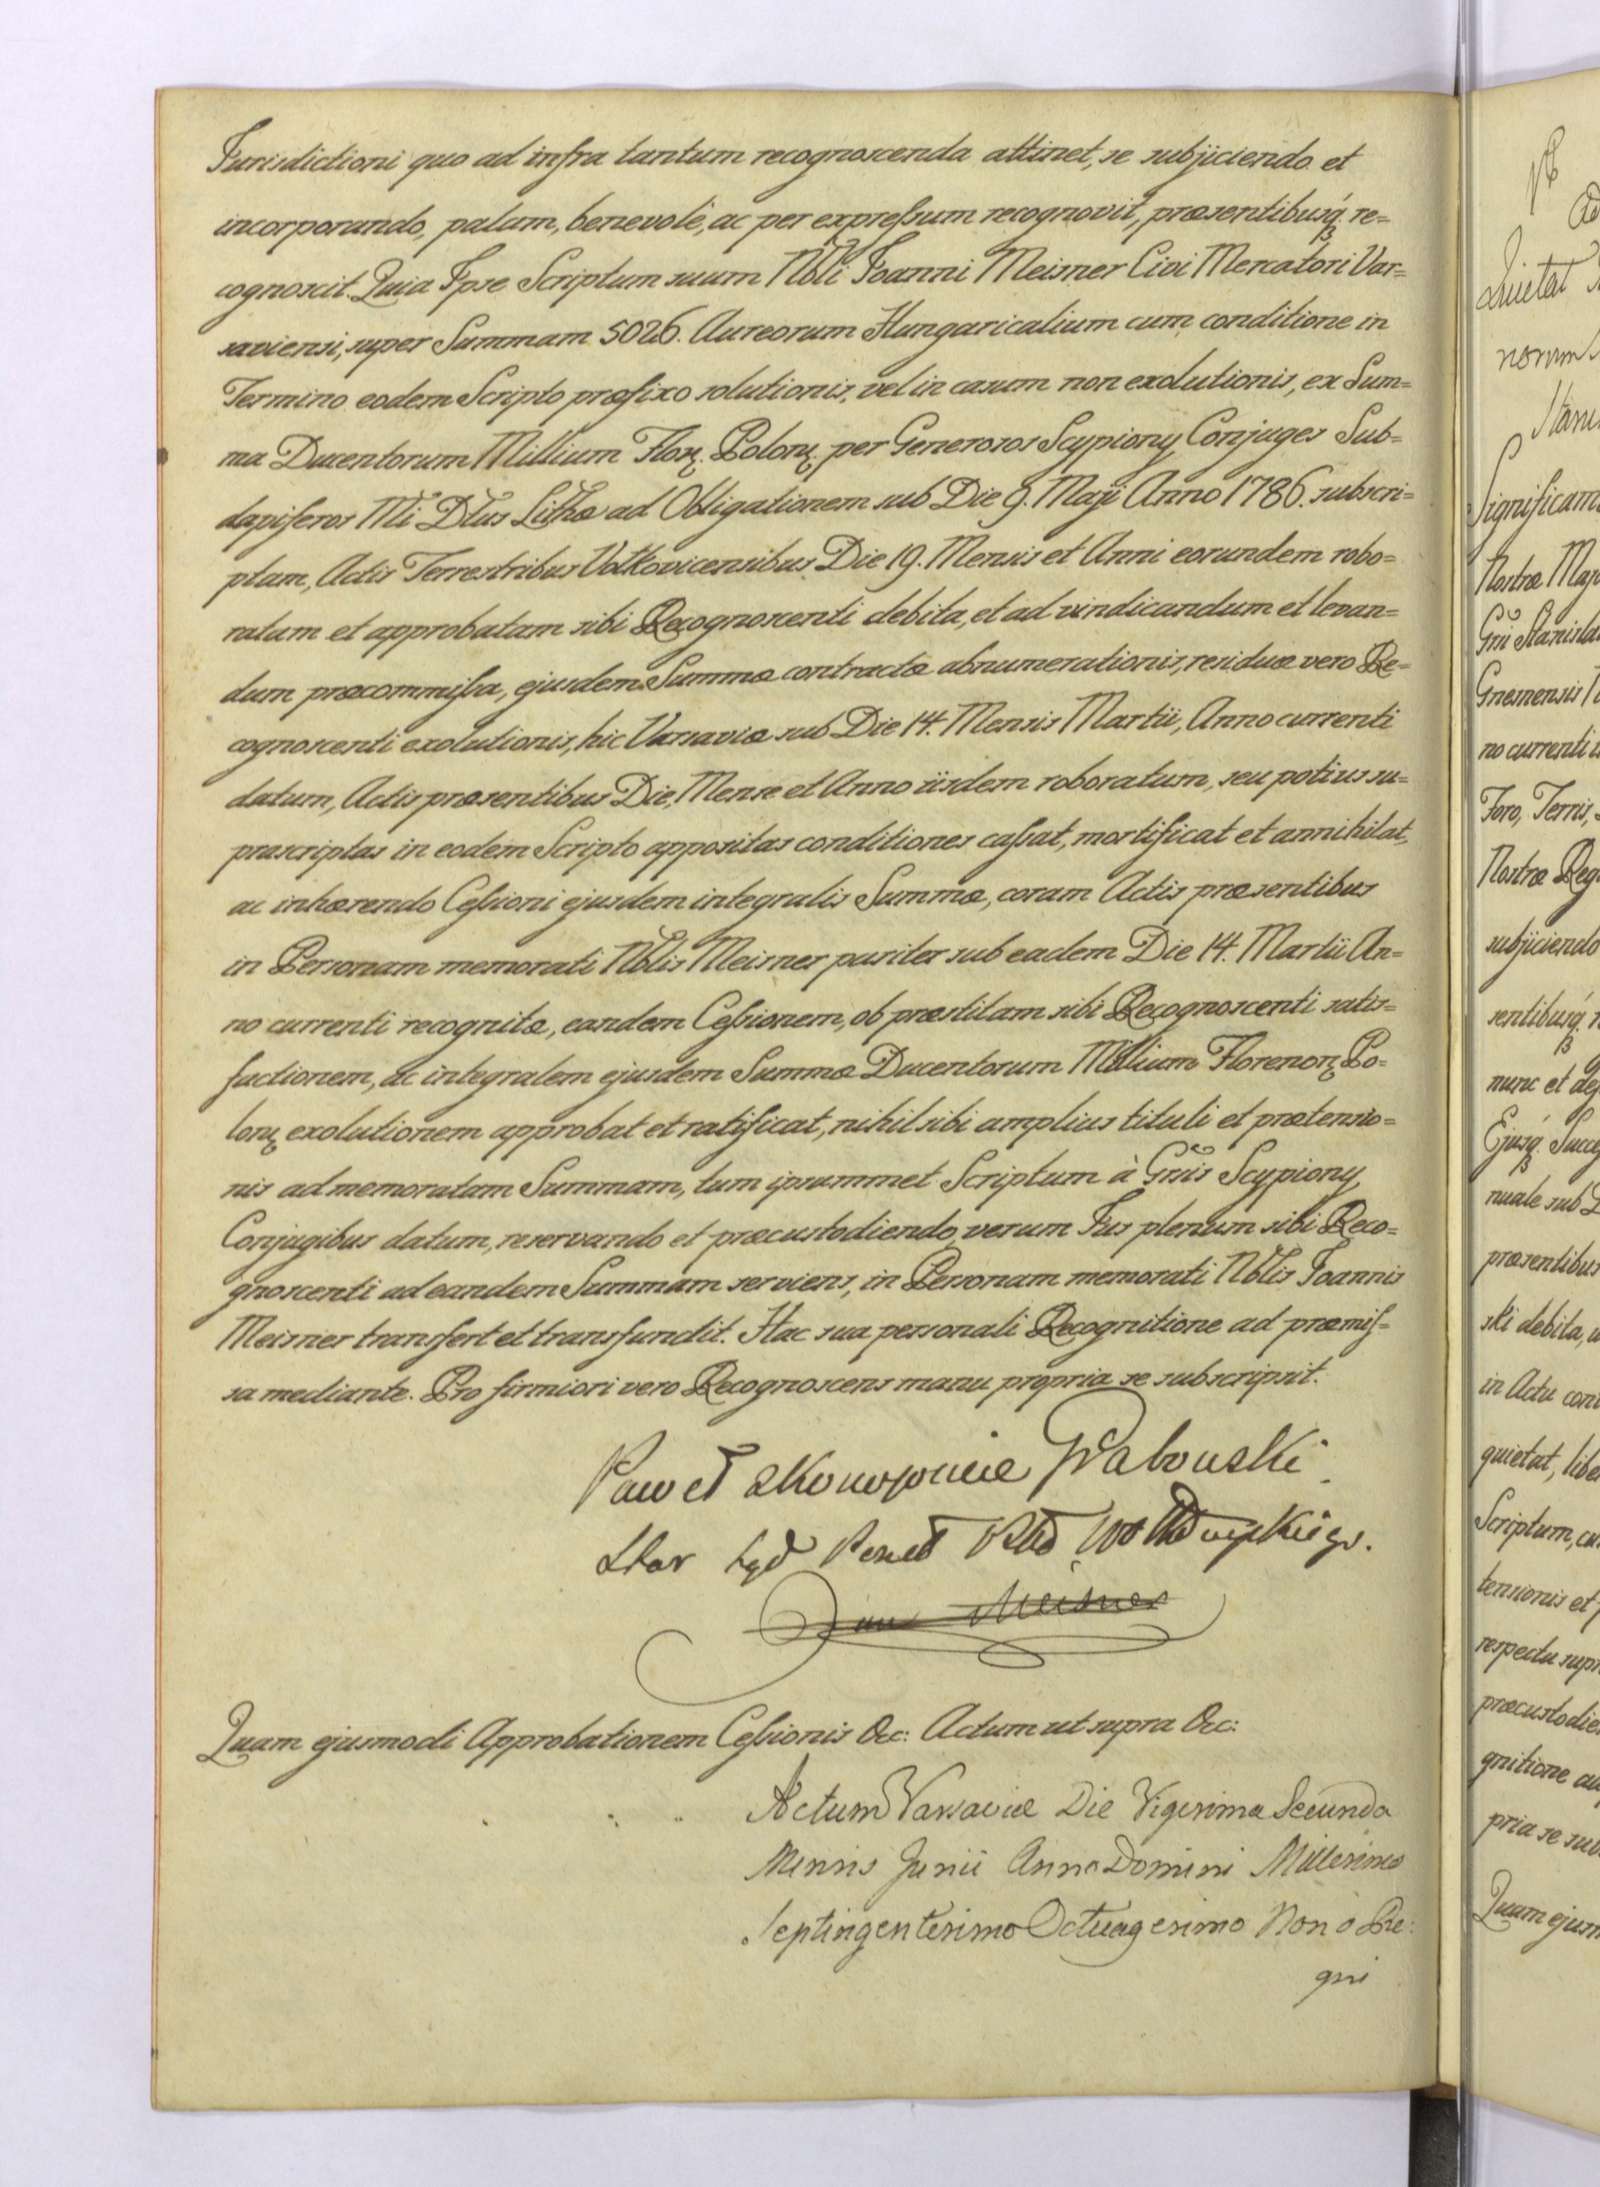 Jurisdictioni quo ad infra tantum recognoscenda attinet, se subjiciendo et
incorporando, palam, benevolè, ac per expreſsum recognovit, præsentibusq́ re=
cognoscit. Quia Ipse Scriptum suum Nbli Joanni Meisner Civi Mercatori Var=
saviensi, super Summam 5026. Aureorum Hungaricalium cum conditione in
Termino eodem Scripto præfixo solutionis, vel in casum non exolutionis, ex Sum=
ma Ducentorum Millium Florꝝ. Polonꝝ. per Generosos Scypiony Conjuges Sub=
dapiferos Mi Dtus Lithæ ad Obligationem sub Die 9. Maji Anno 1786. subscri=
ptam, Actis Terrestribus Volkovicensibus Die 19. Mensis et Anni eorundem robo=
ratam et approbatam sibi Recognoscenti debita, et ad vindicandum et levan=
dum præcommiſsa, ejusdem Summæ contractæ abnumerationis, residuæ vero Re=
cognoscenti exolutionis, hic Varsaviæ sub Die 14. Mensis Martii, Anno currenti
datum, Actis præsentibus Die, Mense et Anno iisdem roboratum, seu potius su=
prascriptas in eodem Scripto appositas conditiones caſsat, mortificat et annihilat,
ac inhærendo Ceſsioni ejusdem integralis Summæ, coram Actis præsentibus
in Personam memorati Nblis Meisner pariter sub eadem Die 14. Martii An=
no currenti recognitæ, eandem Ceſsionem, ob præstitam sibi Recognoscenti satis=
factionem, ac integralem ejusdem Summæ Ducentorum Millium Florenorꝝ Po=
lonꝝ exolutionem approbat et ratificat, nihil sibi amplius tituli et prætensio=
nis ad memoratam Summam, tum ipsummet Scriptum à Gnis Scypiony
Conjugibus datum, reservando et præcustodiendo, verum Jus plenum sibi Reco=
gnoscenti ad eandem Summam serviens, in Personam memorati Nblis Joannis
Meisner transfert et transfundit. Hac sua personali Recognitione ad præmiſ=
sa mediante. Pro firmiori vero Recognoscens manu propria se subscripsit.
Paweł Grabowski
Jan Meisner
Quam ejusmodi Approbationem Ceſsionis &c: Actum ut supra &c:
Actum Varsaviæ Die Vigesima Secunda
Mensis Junii Anno Domini Millesimo
Septingentesimo Octuagesimo Nono Re:
gni
Quietat
norum
Significam
Nostræ Maj
Gni Stanisla
Gnesnensis
no currenti
Foro, Terris,
Nostræ Reg
subjiciendo
sentibusq́
nunc et de
Ejusq́ Succ
nuale sub
præsentibus
ski debita,
in Actu con
quietat, libe
Scriptum, cu
tensionis et
respectu supr
præcustodie
gnitione
pria se sub
Quam ejusm